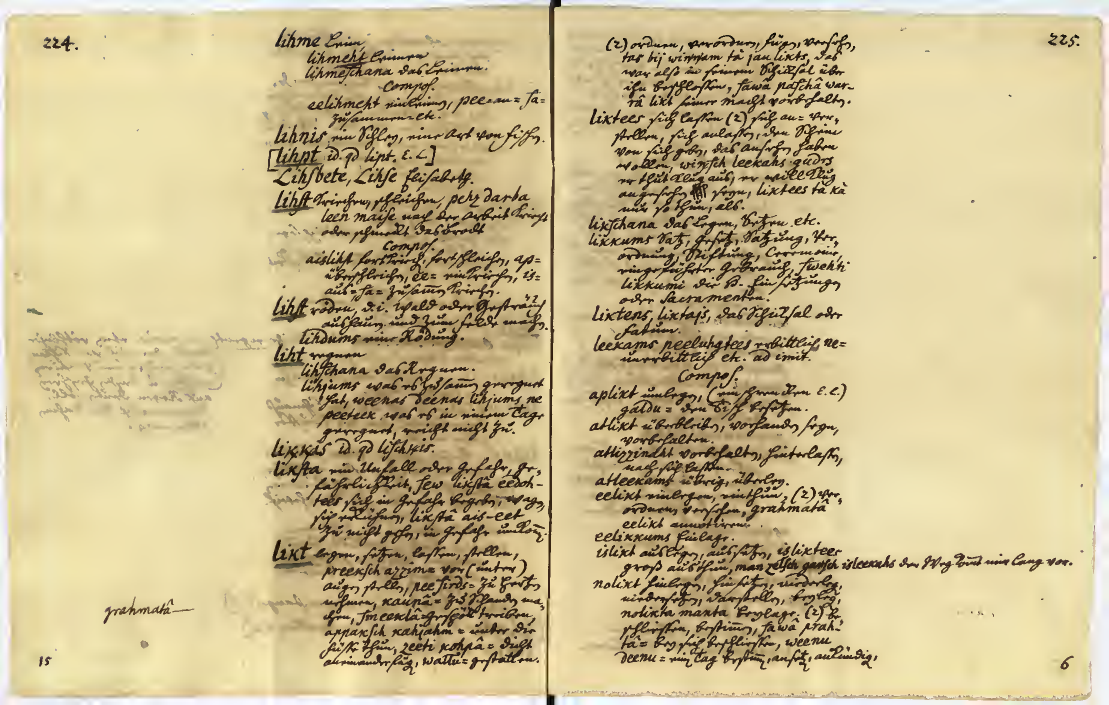 224.
lihme Leim
lihmeht Leimen
lihmeschana das Leimen.
Compos.
eelihmeht einleimen, pee= an= sa=
zusammen= etc.
lihnis ein Schley, eine Art von Fischen.
[lihpt id. qd lipt. E. L.]
Lihsbete, Lihse Elisabeth.
lihst kriechen, schleichen, pehz darba
leen maise nach der Arbeit kriecht
oder schmeckt das Brodt
Compos.
aislihst fortkriech, fortschleichen, ap=
überschleichen, ee= einkriechen, is=
aus= sa= zusamen kriechen.
lihst roden, d.i. wald oder Gesträuch
aushauen und zum felde machen.
lihdums eine Rödung.
liht regnen
lihschana das Regnen.
lihjums was es zusamen geregnet
hat, weenas deenas lihjums ne
peeteek was es in einem Tage
geregnet, reicht nicht zu.
likkas id. qd lischkis.
liksta ein Unfall oder Gefahr, Ge=
fährlichkeit, sew likstâ eedoh-
tees sich in Gefahr begeben, wagen
sich erkühnen, likstâ ais-eet
zu nicht gehen, in Gefahr umkom.
likt legen, setzen, lassen, stellen,
preeksch azzim= vor (unter)
augen stellen, pee sirds= zu Herzen
nehmen, kaunâ= zu Schanden ma=
chen, smeeklâ= gespött treiben,
appaksch kahjahm= unter die
füsse thun, zeeti kohpâ= dicht
aneinander füg, wallu= gestatten.
grahmatâ—
15
225.
(2) ordnen, verordnen, fügen, versehen,
tas bij winnam tâ jau likts, das
war also in seinem Schiksal über
ihn beschlossen, sawâ paschâ war-
râ likt seiner macht vorbehalten.
liktees sich lassen (2) sich an= ver=
stellen, sich anlassen, den Schein
von sich geben, das ansehen haben
wollen, winsch leekahs gudrs
er thut klug aus, er will klug
angesehen seyn, liktees tâ kâ
nur so thun, als.
likschana das Legen, Setzen etc.
likkums Satz, Gesetz, Satzung, Ver=
ordnung, Stiftung, Ceremonie,
eingeführter Gebrauch, swehti
likkumi die H. Einsetzungen
oder Sacramenten.
liktens, liktass, das Schiksal oder
fatum.
leekams peeluhgtees erbittlich, ne=
unerbittlich etc. ad imit.
Compos.
aplikt umlegen, (ein fremden E. L.)
galdu= den Tisch besetzen.
atlikt überbleiben, vorhanden seyn,
vorbehalten.
atlizzinaht vorbehalten, hinterlassen,
nach sich lassen.
atleekams übrig, überley.
eelikt einlegen, einthun, (2) ver=
ordnen, versehen, grahmatâ
eelikt annotiren.
eelikkums Einlage.
islikt auslegen, aussetzen, isliktees
groß austhun, man zelsch garsch isleekahs der Weg komt mir lang vor.
nolikt hinlegen, hinsetzen, niederlegen,
niedersetzen, darstellen, beyleg,
nolikta manta beylage. (2) be
schliessen, bestimen, sawâ prah-
tâ= bey sich beschliessen, weenu
deenu= ein Tag bestim, ansetz, ankündig,
6